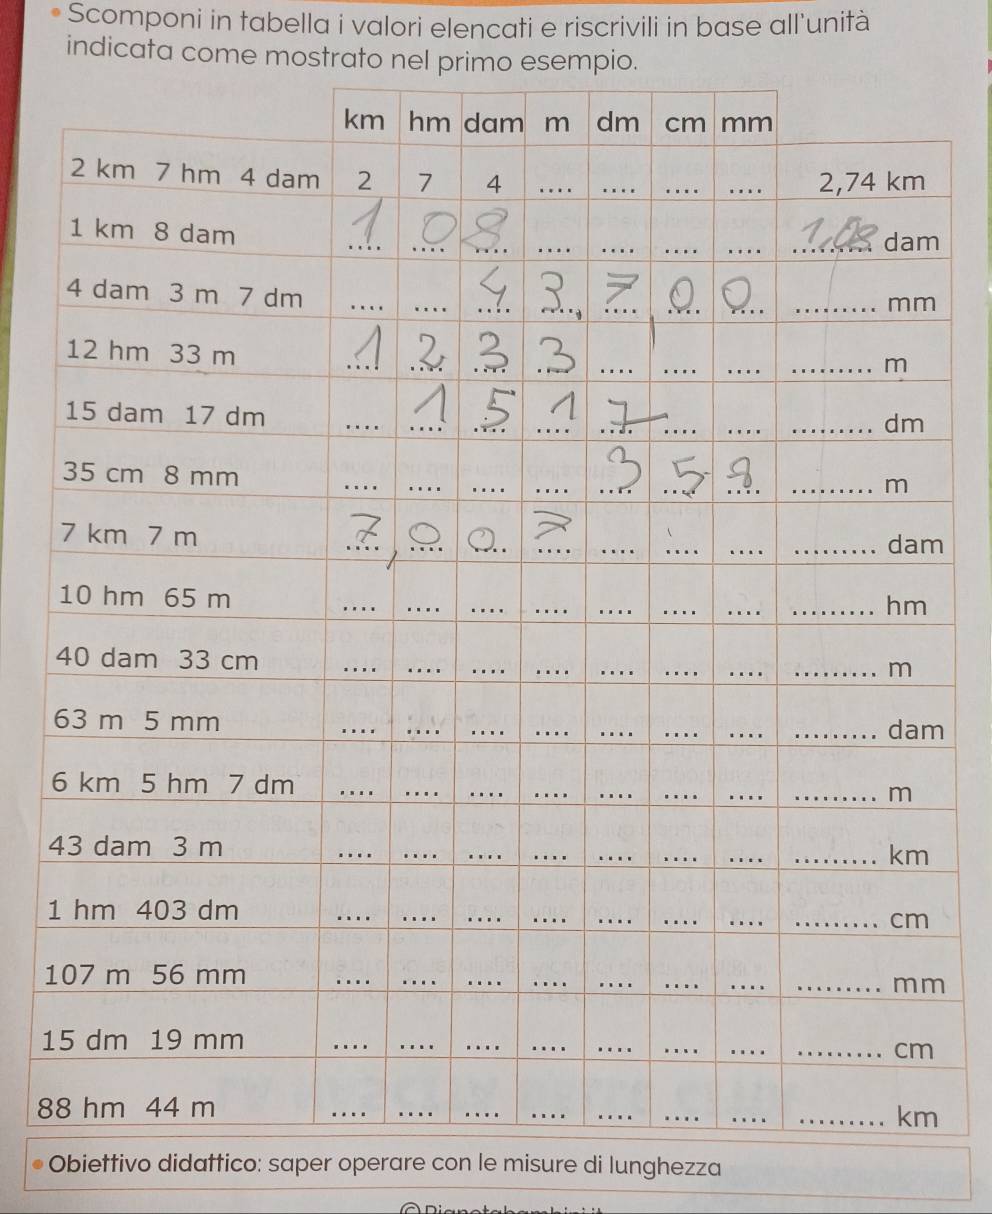 Scomponi in tabella i valori elencati e riscrivili in base all'unità
indicata come mostrato nel primo esempio.
km hm dam m dm cm mm
2 km 7 hm 4 dam 2 7 4 .... .... .... .... 2,74 km
1 km 8 dam 1 0 8 .... .... .... .... 1,08 dam
4 dam 3 m 7 dm .... .... 4 3, 7 0 0 ......... mm
12 hm 33 m 1 2 3 3 .... .... .... ......... m
15 dam 17 dm .... 1 5 1 7 .... .... ......... dm
35 cm 8 mm .... .... .... .... 3 5 8 ......... m
7 km 7 m 7, 0 0 7 .... .... .... ......... dam
10 hm 65 m .... .... .... .... .... .... .... ......... hm
40 dam 33 cm .... .... .... .... .... .... .... ......... m
63 m 5 mm .... .... .... .... .... .... .... ......... dam
6 km 5 hm 7 dm .... .... .... .... .... .... .... ......... m
43 dam 3 m .... .... .... .... .... .... .... ......... km
1 hm 403 dm .... .... .... .... .... .... .... ......... cm
107 m 56 mm .... .... .... .... .... .... .... ......... mm
15 dm 19 mm .... .... .... .... .... .... .... ......... cm
88 hm 44 m .... .... .... .... .... .... .... ......... km
• Obiettivo didattico: saper operare con le misure di lunghezza